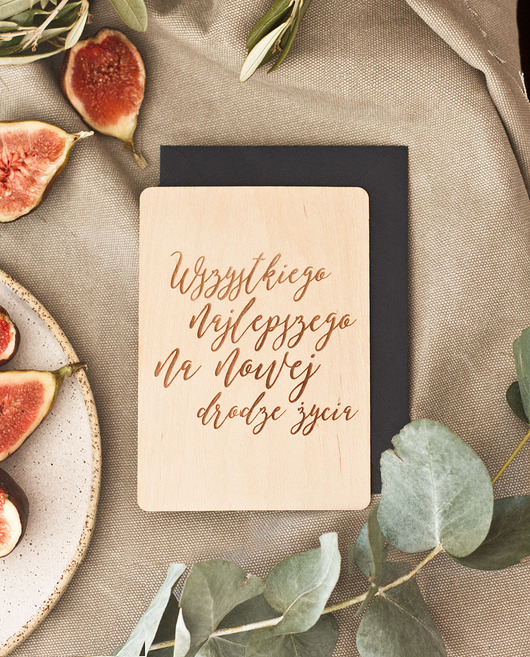 Wszystkiego
najlepszego
na nowej
drodze życia